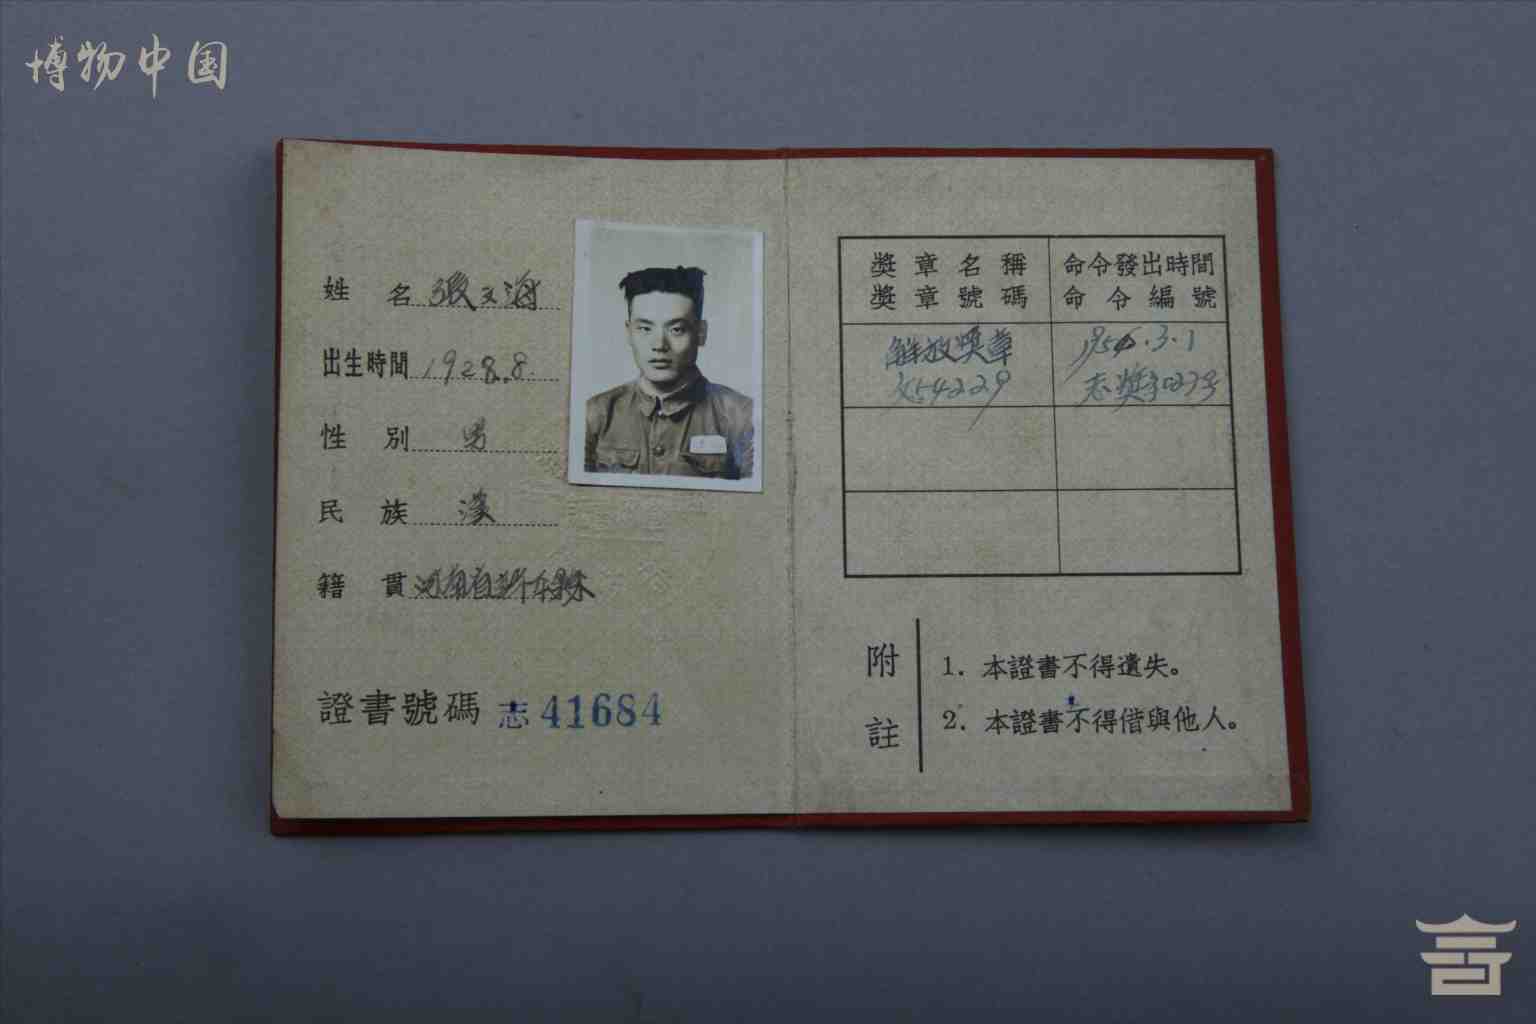 博物中国
姓名 張文海
出生時間 1928.8.
性別 男
民族 漢
籍貫 河南省
證書號碼 志 41684
獎章名稱 命令發出時間
獎章號碼 命令編號
解放獎章 1956.3.1
54229 志獎字027号
附註
1. 本證書不得遺失。
2. 本證書不得借與他人。